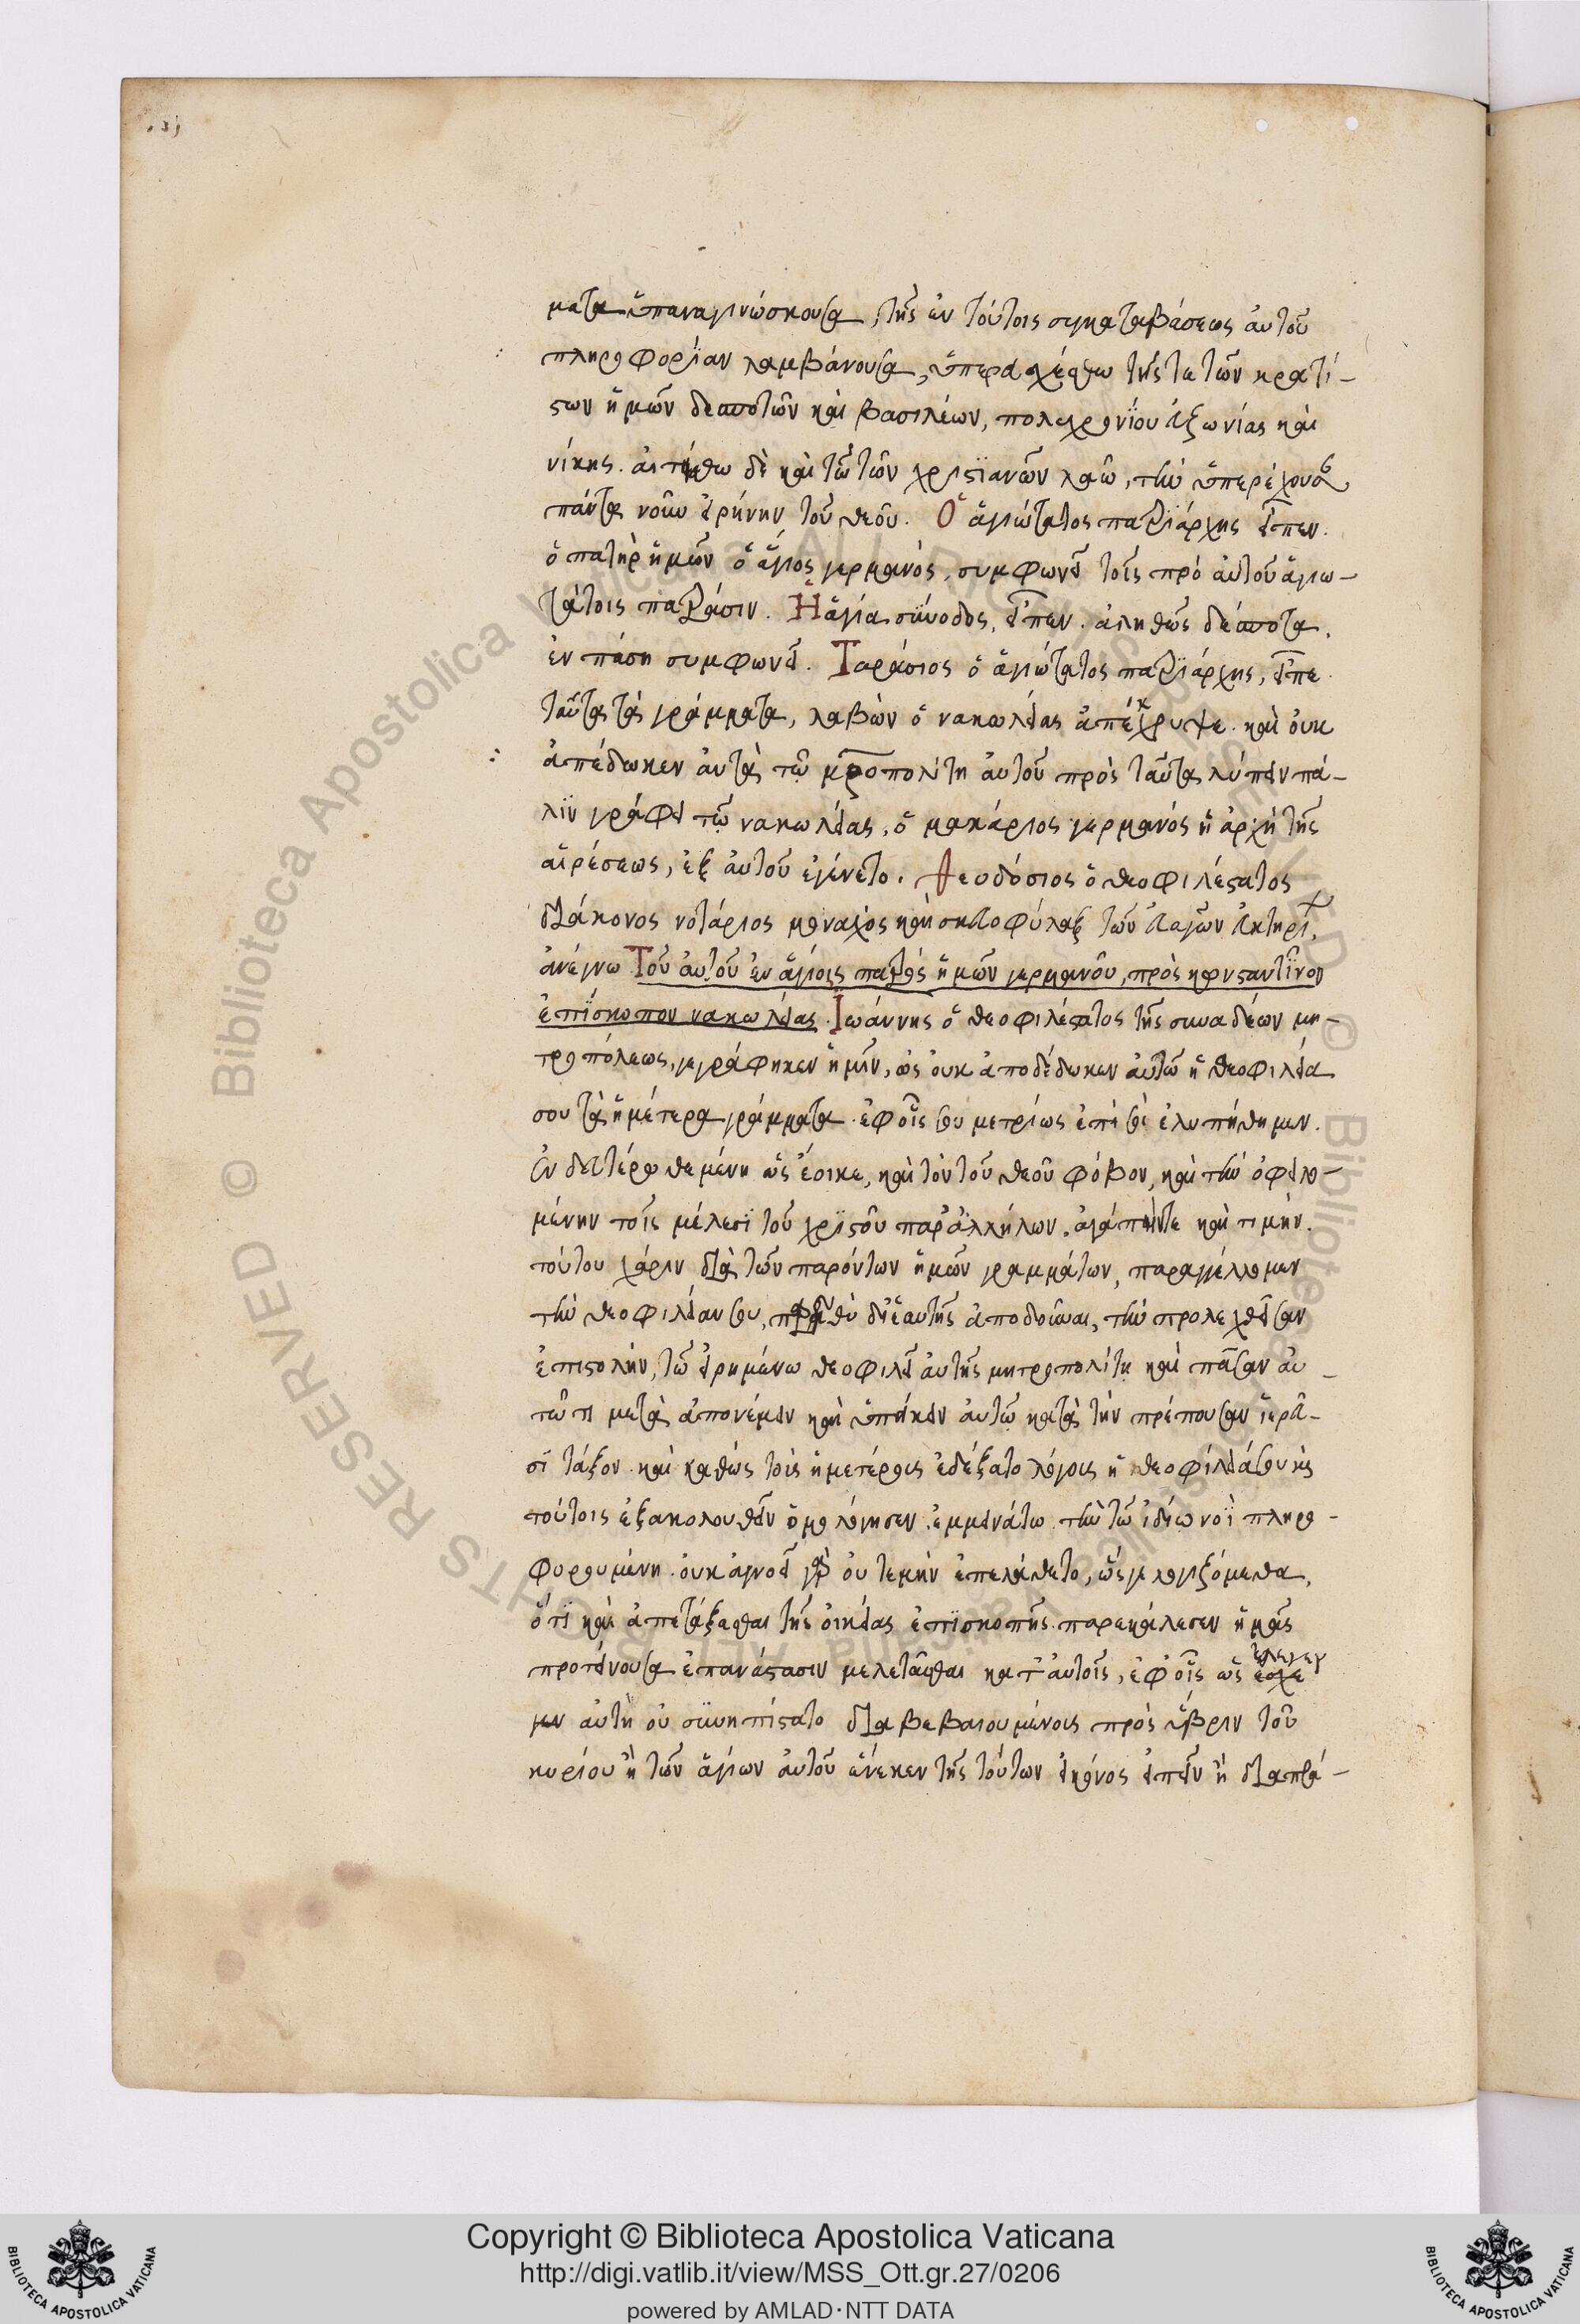 ματα ὑπαναγινώσκουσα, τῆς ἐν τούτοις συγκαταβάσεως αὐτοῦ
πληροφορίαν λαμβάνουσα, ὑπερευχέσθω τῆς τε τῶν κρατί-
στων ἡμῶν δεσποτῶν καὶ βασιλέων, πολυχρονίου ἀξωνίας καὶ
νίκης. αἰτείσθω δὲ καὶ τῷ τῶν χριστϊανῶν λαῷ, τὴν ὑπερέχουσαν
πάντα νοῦν εἰρήνην τοῦ θεοῦ. Ὁ ἁγιώτατος πατριάρχης εἶπεν.
ὁ πατὴρ ἡμῶν ὁ ἅγιος γερμανὸς, συμφωνεῖ τοῖς πρὸ αὐτοῦ ἁγιω-
τάτοις πατράσιν. Ἡ ἁγία σύνοδος, εἶπεν. ἀληθῶς δέσποτα,
ἐν πάση συμφωνεῖ. Ταράσιος ὁ ἁγιώτατος πατριάρχης, εἶπε.
ταῦτα τὰ γράμματα, λαβὼν ὁ νακωλείας ἀπέκρυψε. καὶ οὐκ
ἀπέδωκεν αὐτὰ τῷ μητροπολίτη αὐτοῦ πρὸς ταῦτα λύπειν πά-
λϊν γράφει τῷ νακωλείας, ὁ μακάριος γερμανός ἡ ἀρχὴ τῆς
αἱρέσεως, ἐξ αὐτοῦ ἐγένετο. Θεοδόσιος ὁ θεοφιλέστατος
διάκονος νοτάριος μοναχὸς καὶ σκευοφύλαξ τῶν εὐαγῶν εὐκτηρί,
ἀνέγνω Τοῦ αὐτοῦ ἐν ἁγίοις πατρός ἡμῶν γερμανοῦ, πρὸς κωνσταντῖνον
ἐπΐσκοπον νακωλείας. Ἰωάννης ὁ θεοφιλέστατος τῆς συναδέων μη-
τροπόλεως, γεγράφηκεν ἡμῖν, ὡς οὐκ ἀποδέδωκεν αὐτῷ ἡ θεοφιλεία
σου τὰ ἡμέτερα γράμματα. ἐφ οἷς οὐ μετρίως ἐπὶ σοὶ ἐλυπήθημεν.
ἐν δευτέρῳ θεμένη ὡς ἔοικε, καὶ τὸν τοῦ θεοῦ φόβον, καὶ τὴν ὀφειλο-
μένην τοῖς μέλεσϊ τοῦ χρϊστοῦ παρ ἀλλήλων. ἀγάπην τε καὶ τιμήν.
τούτου χάριν διὰ τῶν παρόντων ἡμῶν γραμμάτων, παραγγέλλομεν
τὴν θεοφιλείαν σου, δι ἑαυτῆς ἀποδοῦναι, τὴν προλεχθεῖσαν
ἐπιστολὴν, τῷ εἰρημένω θεοφιλεῖ αὐτῆς μητροπολίτη καὶ πᾶσαν αυ
τῶ τι μετὰ ἀπονέμειν καὶ ὑπείκειν αὐτῷ κατὰ τὴν πρέπουσαν ἱερα-
σΐ τάξον. καὶ καθὼς τοῖς ἡμετέροις ἐδέξατο λόγοις ἡ θεοφίλειά σου καὶ
τούτοις ἐξακολουθεῖν ὁμολόγησεν. ἐμμεινάτω τὴν τῷ ἰδίω νοῒ πληρο-
φορουμένη. οὐκ ἀγνοεῖ γὰρ οὐ τεμὴν ἐπελάθετο, ὥς γε λογιζόμεθα,
ὅτϊ καὶ ἀπετάξασθαι τῆς οἰκείας ἐπϊσκοπῆς παρεκάλεσεν ἡμᾶς
προτείνουσα ἐπανάστασιν μελετᾶσθαι κατ αὐτοῖς, ἐφ οἷς ὡς ἔλεγεν
μεν αὐτὴ οὐ συνηπίστατο διαβεβαιουμένοις πρὸς ὕβριν τοῦ
κυρίου ἢ τῶν ἁγίων αὐτοῦ ἕνεκεν τῆς τούτων εἰκόνος εἰπεῖν ἢ διαπρά-
Copyright © Biblioteca Apostolica Vaticana
http://digi.vatlib.it/view/MSS_Ott.gr.27/0206
powered by AMLAD·NTT DATA
BIBLIOTECA APOSTOLICA VATICANA
BIBLIOTECA APOSTOLICA VATICANA